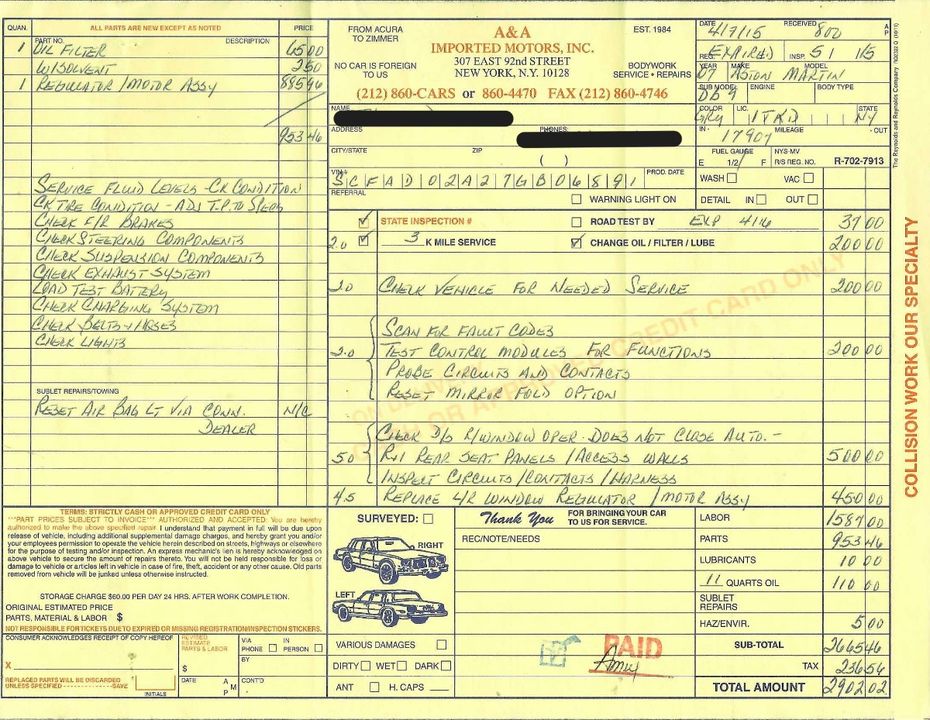 QUAN. ALL PARTS ARE NEW EXCEPT AS NOTED PRICE
PART NO. DESCRIPTION
1 OIL FILTER 65 00
W/SOLVENT 2 50
1 REGULATOR / MOTOR ASSY 885 96
953 46
SERVICE FLUID LEVELS - CK CONDITION
CK TIRE CONDITION - ADJ T.P. TO SPECS
CHECK F/R BRAKES
CHECK STEERING COMPONENTS
CHECK SUSPENSION COMPONENTS
CHECK EXHAUST SYSTEM
LOAD TEST BATTERY
CHECK CHARGING SYSTEM
CHECK BELTS + HOSES
CHECK LIGHTS
SUBLET REPAIRS/TOWING
RESET AIR BAG LT VIA CONN. N/C
DEALER
TERMS: STRICTLY CASH OR APPROVED CREDIT CARD ONLY
***PART PRICES SUBJECT TO INVOICE*** AUTHORIZED AND ACCEPTED: You are hereby
authorized to make the above specified repair. I understand that payment in full will be due upon
release of vehicle, including additional supplemental damage charges, and hereby grant you and/or
your employees permission to operate the vehicle herein described on streets, highways or elsewhere
for the purpose of testing and/or inspection. An express mechanic's lien is hereby acknowledged on
above vehicle to secure the amount of repairs thereto. You will not be held responsible for loss or
damage to vehicle or articles left in vehicle in case of fire, theft, accident or any other cause. Old parts
removed from vehicle will be junked unless otherwise instructed.
STORAGE CHARGE $60.00 PER DAY 24 HRS. AFTER WORK COMPLETION.
ORIGINAL ESTIMATED PRICE
PARTS, MATERIAL & LABOR $
NOT RESPONSIBLE FOR TICKETS DUE TO EXPIRED OR MISSING REGISTRATION/INSPECTION STICKERS.
CONSUMER ACKNOWLEDGES RECEIPT OF COPY HEREOF
X
REPLACED PARTS WILL BE DISCARDED
UNLESS SPECIFIED SAVE
INITIALS
REVISED ESTIMATE PARTS & LABOR
$
DATE A M P
VIA PHONE IN PERSON
BY
CONT'D
FROM ACURA
TO ZIMMER
NO CAR IS FOREIGN
TO US
A&A
IMPORTED MOTORS, INC.
307 EAST 92nd STREET
NEW YORK, N.Y. 10128
EST. 1984
BODYWORK
SERVICE • REPAIRS
(212) 860-CARS or 860-4470 FAX (212) 860-4746
NAME
ADDRESS PHONES:
CITY/STATE ZIP ( )
VIN# SCFAD02A27GB06891 PROD. DATE
REFERRAL
WARNING LIGHT ON
DATE 4/7/15 RECEIVED 8 00 A P
REG. EXPIRED INSP. 5 1 15
YEAR MAKE MODEL
07 ASTON MARTIN
SUB MODEL ENGINE BODY TYPE
DB9
COLOR LIC. STATE
GRY NY
IN - 17907 MILEAGE - OUT
FUEL GAUGE NYS-MV
E 1/2 F R/S REG. NO. R-702-7913
WASH VAC
DETAIL IN OUT
STATE INSPECTION # ROAD TEST BY EXP 4/16 37 00
2.0 3 K MILE SERVICE CHANGE OIL / FILTER / LUBE 200 00
2.0 CHECK VEHICLE FOR NEEDED SERVICE 200 00
SCAN FOR FAULT CODES
2.0 TEST CONTROL MODULES FOR FUNCTIONS 200 00
PROBE CIRCUITS AND CONTACTS
RESET MIRROR FOLD OPTION
CHECK D/S R/WINDOW OPER - DOES NOT CLOSE AUTO. -
5.0 R+I REAR SEAT PANELS / ACCESS WALLS 500 00
INSPECT CIRCUITS / CONTACTS / HARNESS
4.5 REPLACE L/R WINDOW REGULATOR / MOTOR ASSY 450 00
CASH OR APPROVED CREDIT CARD ONLY
SURVEYED:
RIGHT
LEFT
VARIOUS DAMAGES
DIRTY WET DARK
ANT H. CAPS
Thank You FOR BRINGING YOUR CAR
TO US FOR SERVICE.
REC/NOTE/NEEDS
PAID
Amy
LABOR 1587 00
PARTS 953 46
LUBRICANTS 10 00
11 QUARTS OIL 110 00
SUBLET
REPAIRS
HAZ/ENVIR. 5 00
SUB-TOTAL 2665 46
TAX 236 56
TOTAL AMOUNT 2902 02
COLLISION WORK OUR SPECIALTY
The Reynolds and Reynolds Company